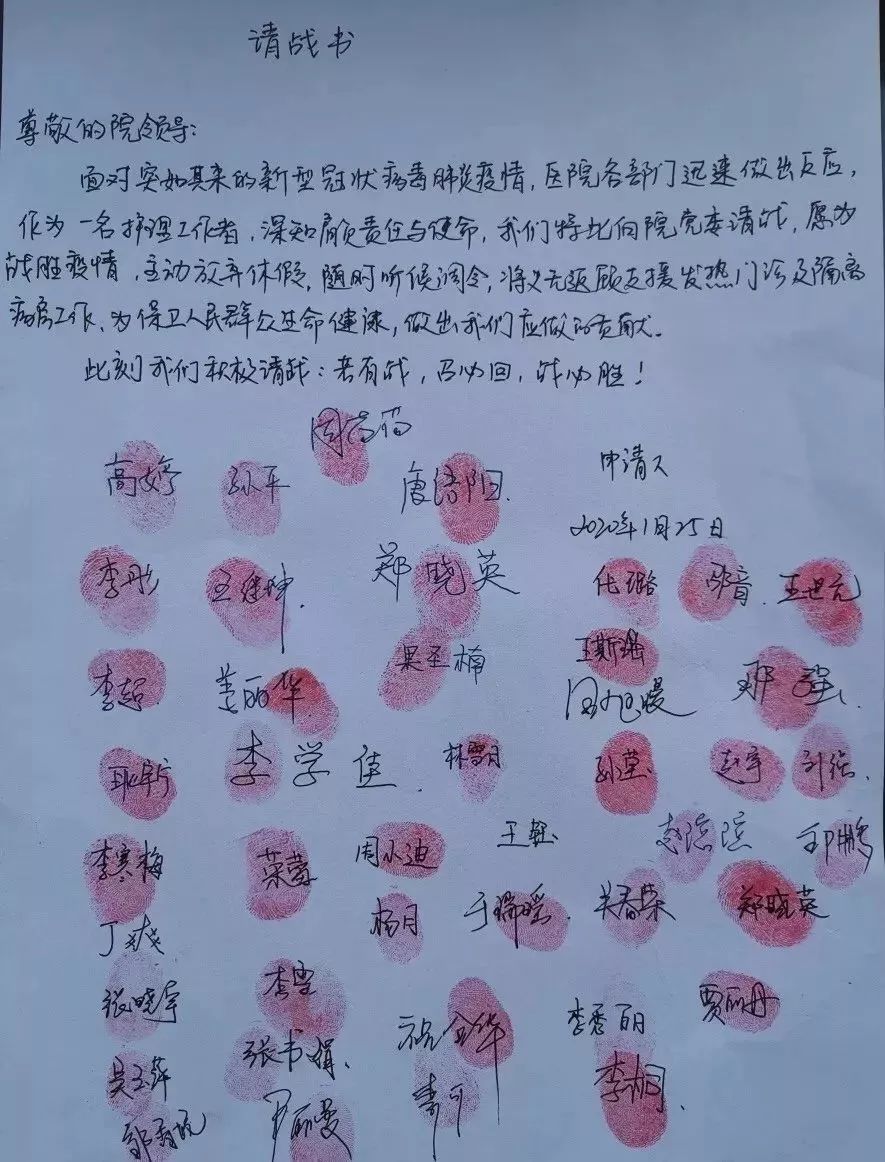 请战书
尊敬的院领导:
面对突如其来的新型冠状病毒肺炎疫情,医院各部门迅速做出反应,
作为一名护理工作者,深知肩负责任与使命,我们特此向院党委请战,愿为
战胜疫情,主动放弃休假,随时听候调令,将义无返顾支援发热门诊及隔离
病房工作、为保卫人民群众生命健康,做出我们应做的贡献。
此刻我们积极请战:若有战,召必回,战必胜!
高婷 孙平 唐语阳.
申请人
2020年1月25日
李彤 王继坤. 郑晓英 王世元
李超 姜丽华 吴圣楠 王斯瑶
李学佳 林雪月 孙莹 赵宇
李寒梅 荣蓉 周小迪 王钰 赵滨滨 邱鹏
丁爽 杨月 于瑞瑶. 关春荣 郑晓英
张晓宇 李雪 李秀丽 贾丽丹
吴玉萍 张书娟、 李
罗丽曼